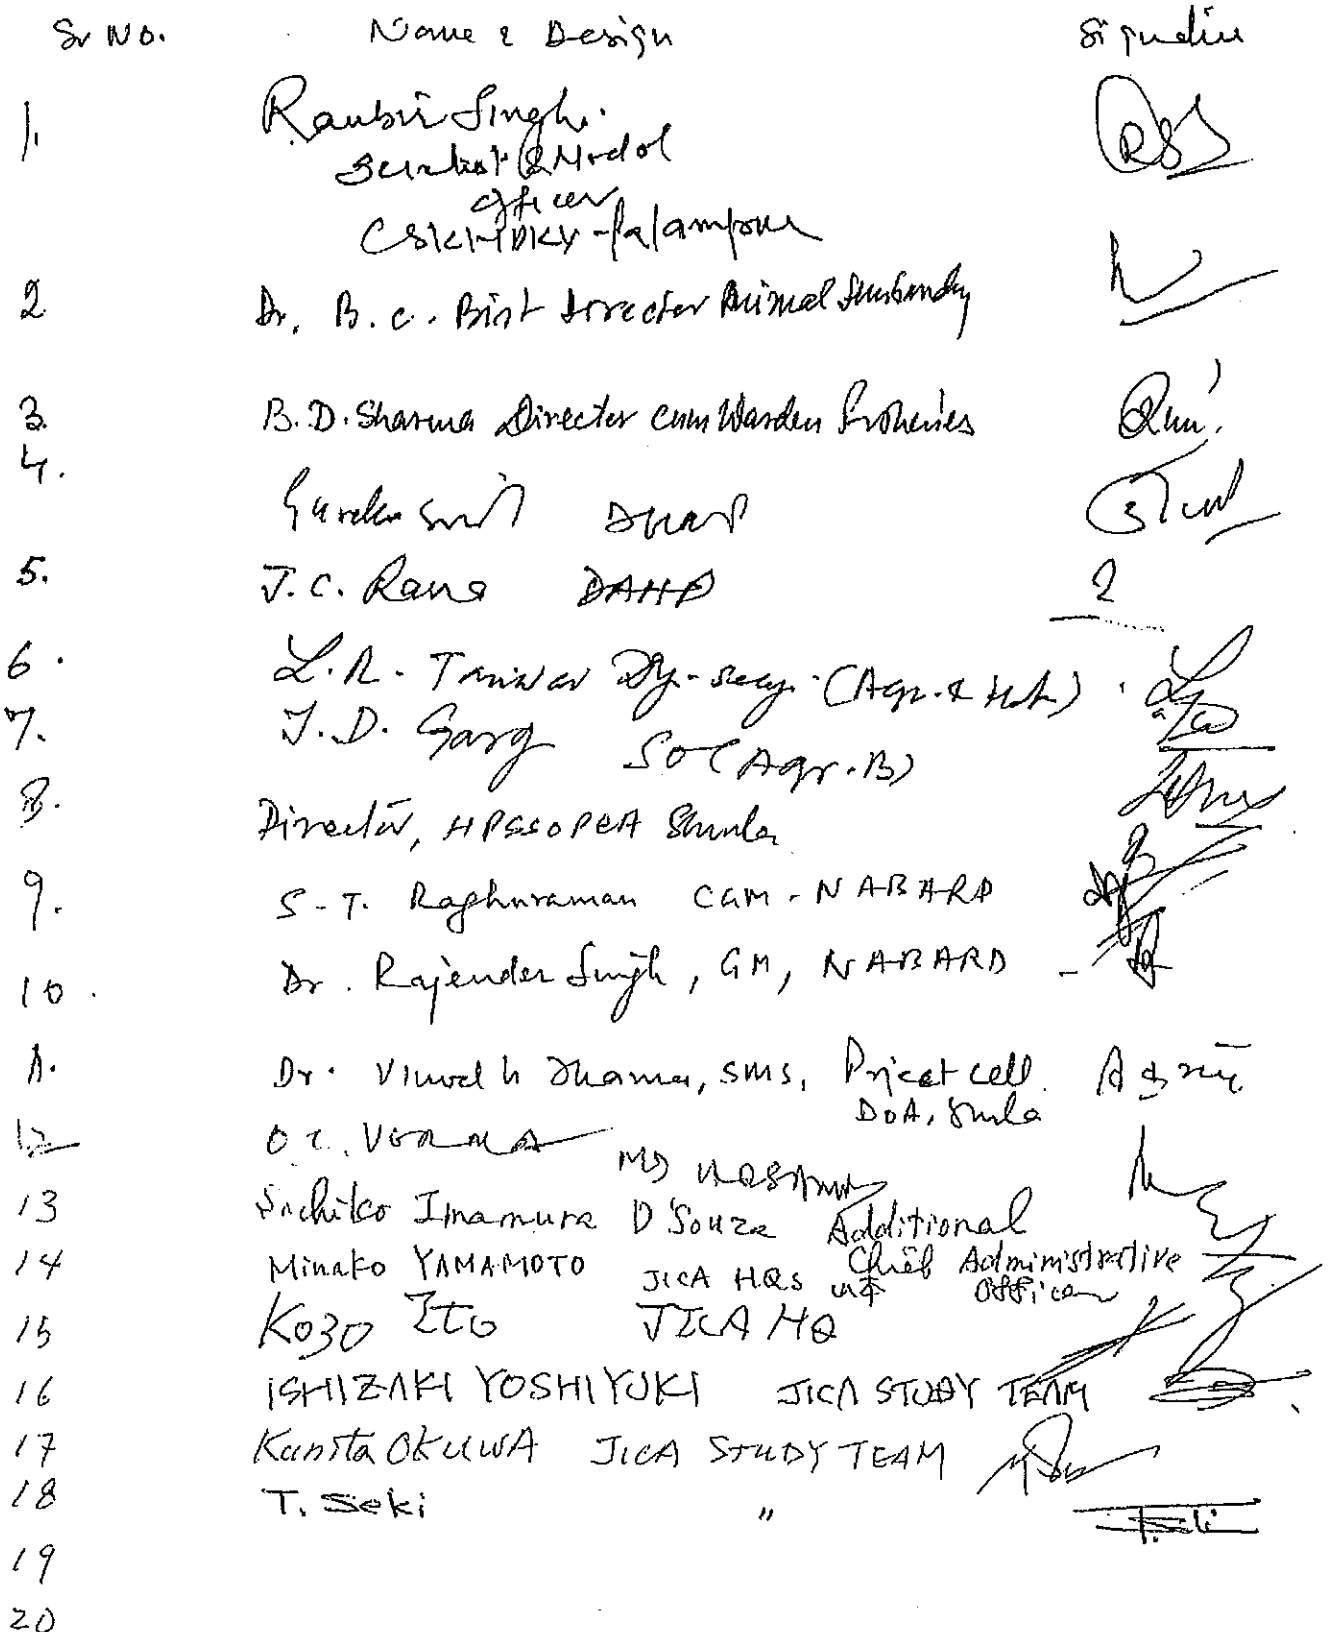 Sr No. Name & Design Signature
1. Ranbir Singh.
Scientist & Nodal
Officer
CSKHPKV - Palampur
2 Dr. B.C. Bist Director Animal Husbandry
3. B.D. Sharma Director cum Warden Fisheries
4.
5. J.C. Rana DAHP
6. L.R. Tanwar Dy. Secy. (Agr. & Hort.)
7. J.D. Garg SO (Agr. B)
8. Director, HPSSOPCA Shimla
9. S.T. Raghuraman CGM - NABARD
10. Dr. Rajender Singh, GM, NABARD
11. Dr. Vinod Sharma, SMS, Project cell
DOA, Shimla
12 O.C. VERMA MD
13 Sachiko Imamura D'Souza Additional
Chief Administrative
Officer
14 Minako YAMAMOTO JICA HQs
15 Kozo Ito JICA HQ
16 ISHIZAKI YOSHIYUKI JICA STUDY TEAM
17 Kunita OKUWA JICA STUDY TEAM
18 T. Seki "
T. Seki
19
20